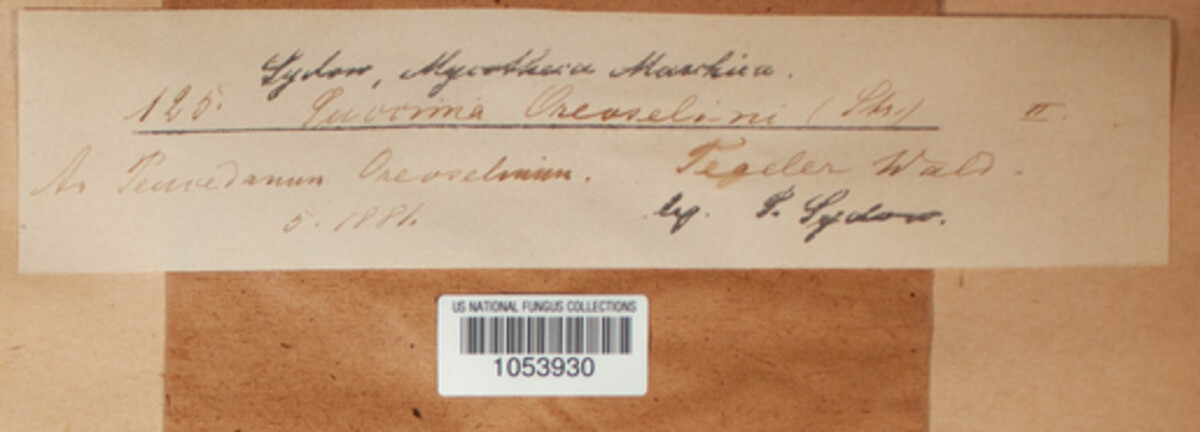 Sydow, Mycotheca Marchica.
125. Puccinia Oreoselini (Str.) II.
An Peucedanum Oreoselinum. Tegeler Wald.
5. 1881. leg. P. Sydow.
US NATIONAL FUNGUS COLLECTIONS
1053930